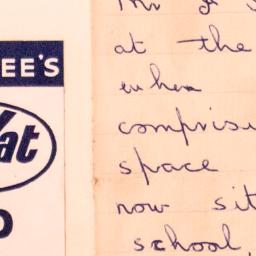 EE'S
at
at the
when
comprisi
space
now sit
school,